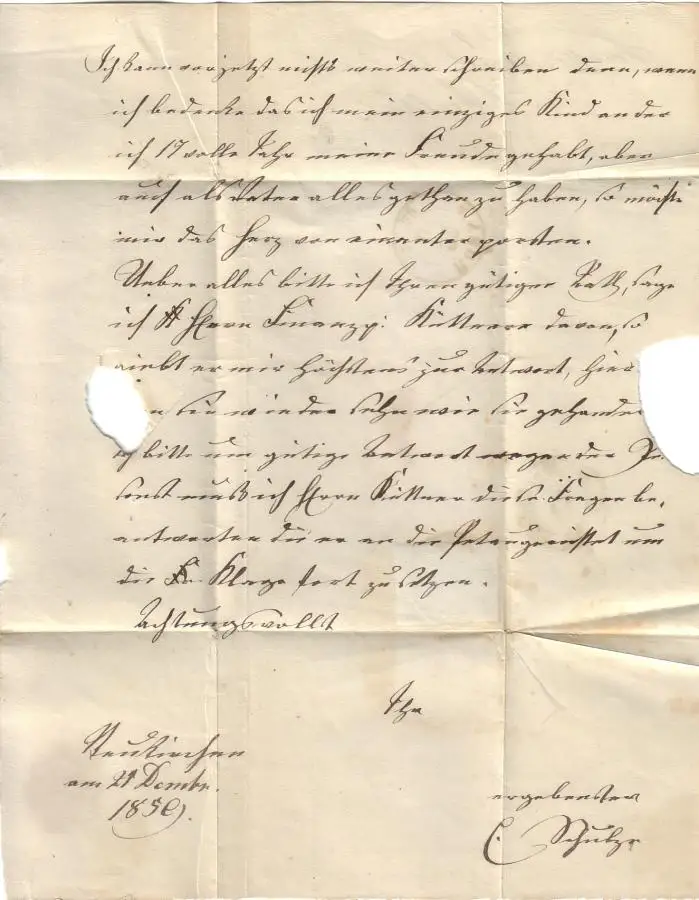 Ich kann vor jetzt nichts weiter schreiben denn, wenn
ich bedenke das ich mein einziges Kind an der
ich 17 volle Jahr meine Freude gehabt, aber
auch als Vater alles gethan zu haben, so möchte
mir das Herz von einanter
Ueber alles bitte ich Ihren gütigen Rath, sage
ich Herrn Finanzp: Küttner davon, so
giebt er mir höchstens zur Antwort, hier
Sie wieder sehn wie sie gehandel
ich bitte um gütige Antwort wegen der
sonst muß ich Herrn Küttner diese Fragen be,
antworten die er an die gerichtet um
die Klage fort zu setzen.
Achtungsvollst
Ihr
Neukirchen
am 21 Dembr.
1850.
ergebenster
C. Schulze